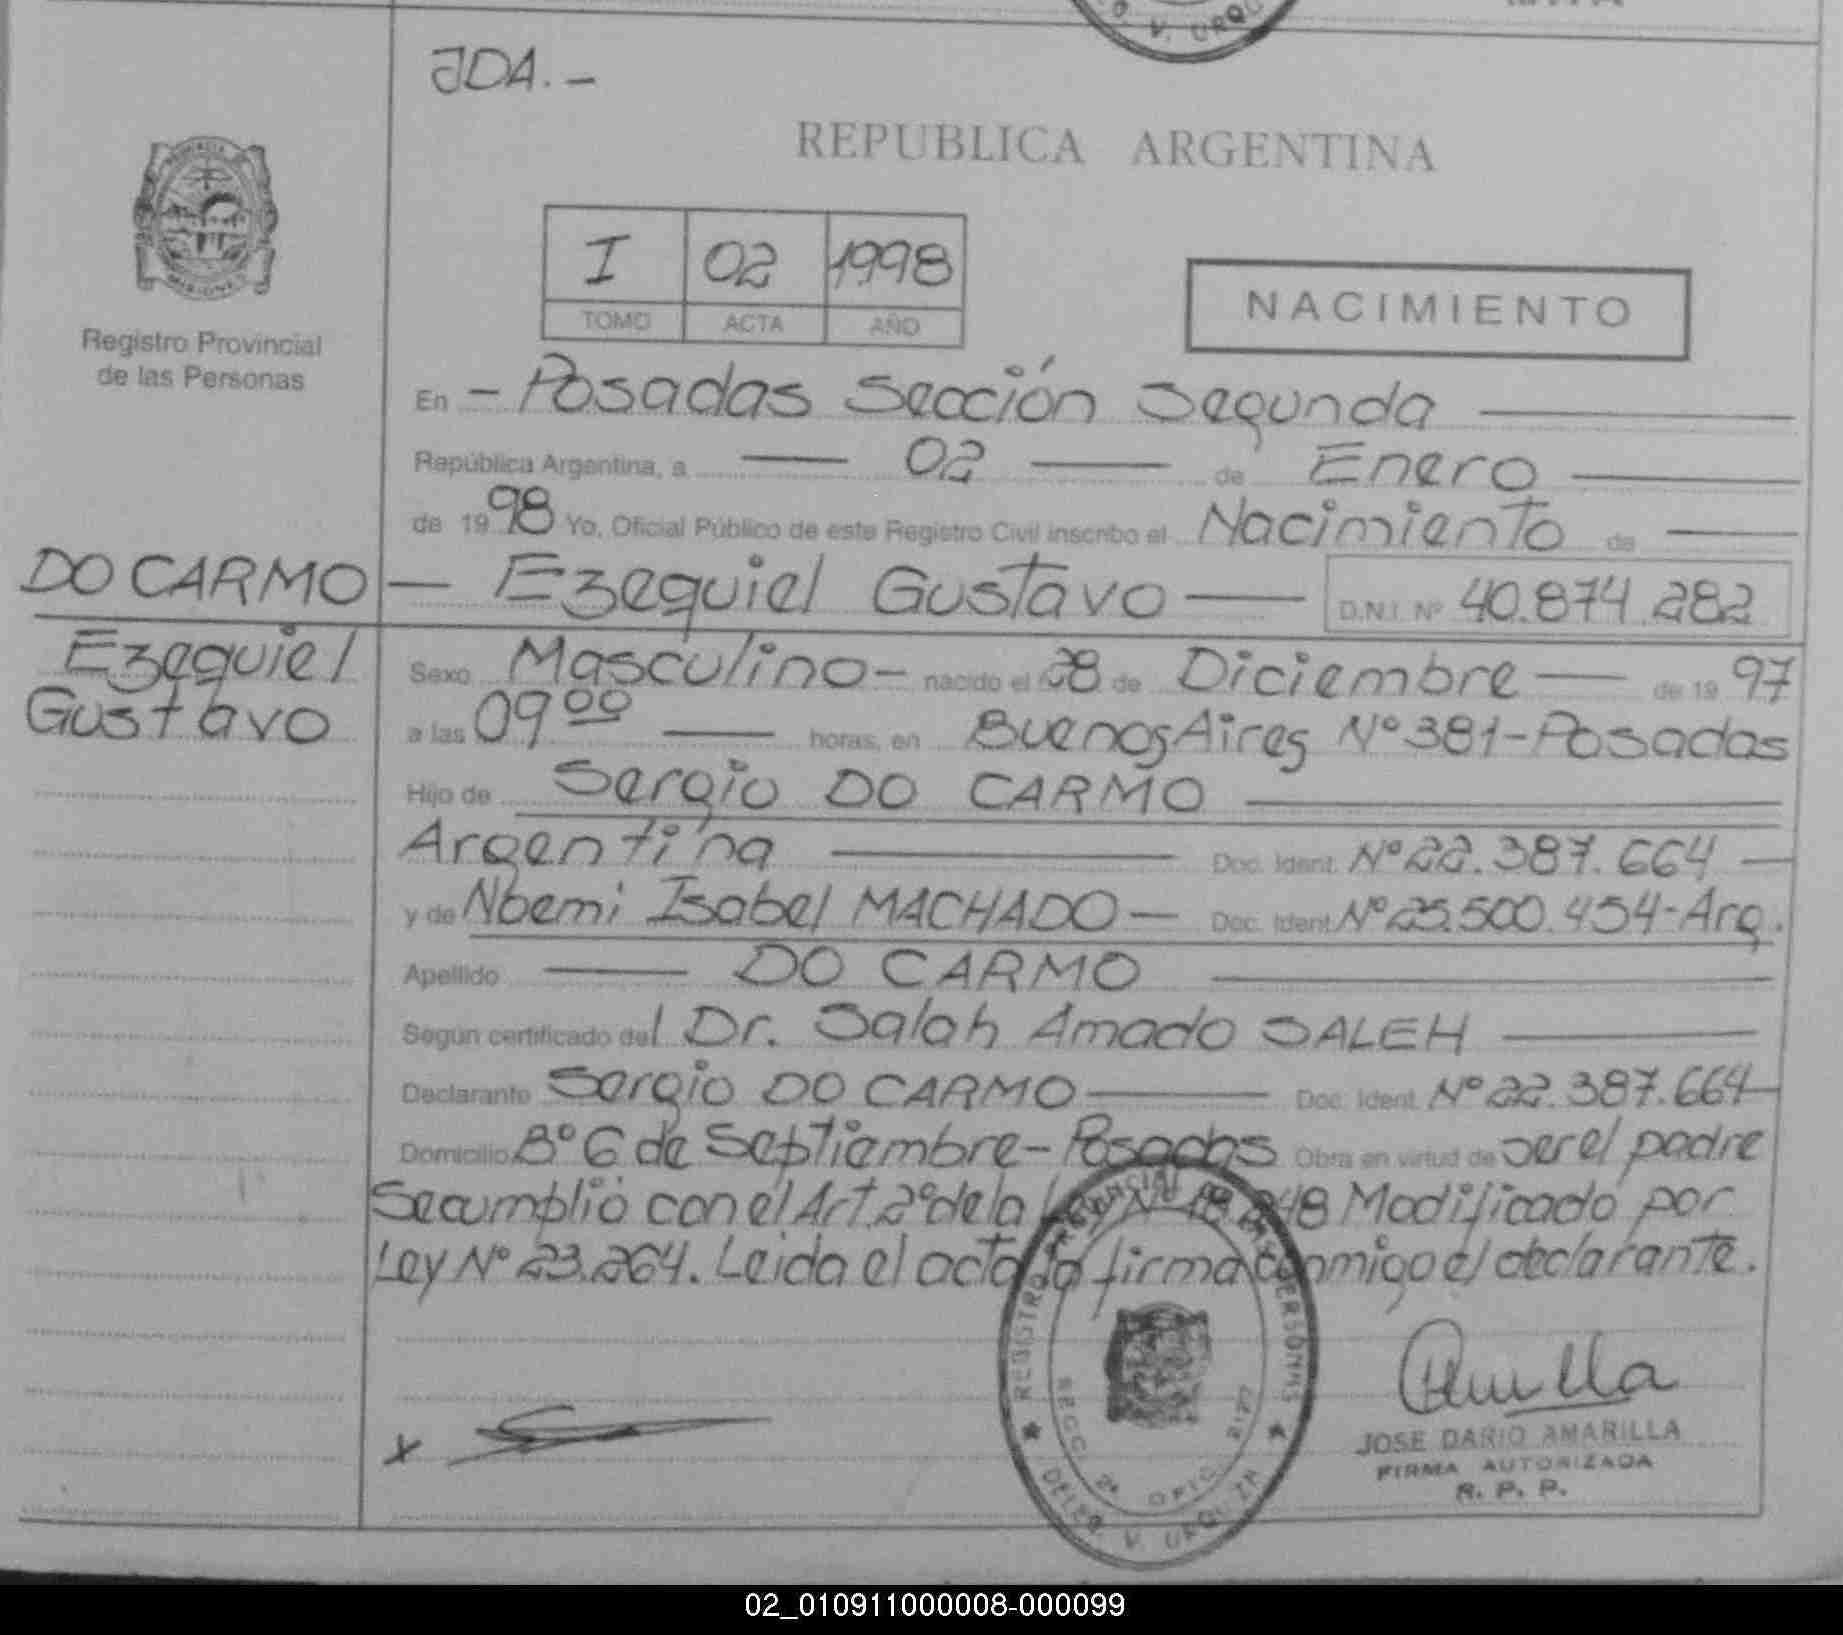 V. URQU
JDA.-
REPUBLICA ARGENTINA
PROVINCIA DE
MISIONES
Registro Provincial
de las Personas
I 02 1998
TOMO ACTA AÑO
NACIMIENTO
En - Posadas Sección Segunda
República Argentina, a 02 de Enero
de 1998 Yo, Oficial Público de este Registro Civil inscribo el Nacimiento de
DO CARMO
Ezequiel
Gustavo
Ezequiel Gustavo D.N.I. Nº 40.874.282
Sexo Masculino- nacido el 28 de Diciembre de 1997
a las 09 00 horas, en Buenos Aires Nº 381-Posadas
Hijo de Sergio DO CARMO
Argentina Doc. Ident. Nº 22.387.664
y de Noemi Isabel MACHADO Doc. Ident. Nº 25.500.454-Arg.
Apellido DO CARMO
Según certificado del Dr. Salah Amado SALEH
Declarante Sergio DO CARMO Doc. Ident. Nº 22.387.664
Domicilio Bº 6 de Septiembre-Posadas Obra en virtud de ser el padre
Se cumplió con el Art. 2º de la Ley Nº 18.248 Modificado por
Ley Nº 23.264. Leida el acta la firma conmigo el declarante.
REGISTRO PROVINCIAL DE LAS PERSONAS
SECC. 2ª OFIC.
DELEG. V. URQUIZA
x
JOSE DARIO AMARILLA
FIRMA AUTORIZADA
R. P. P.
02_010911000008-000099